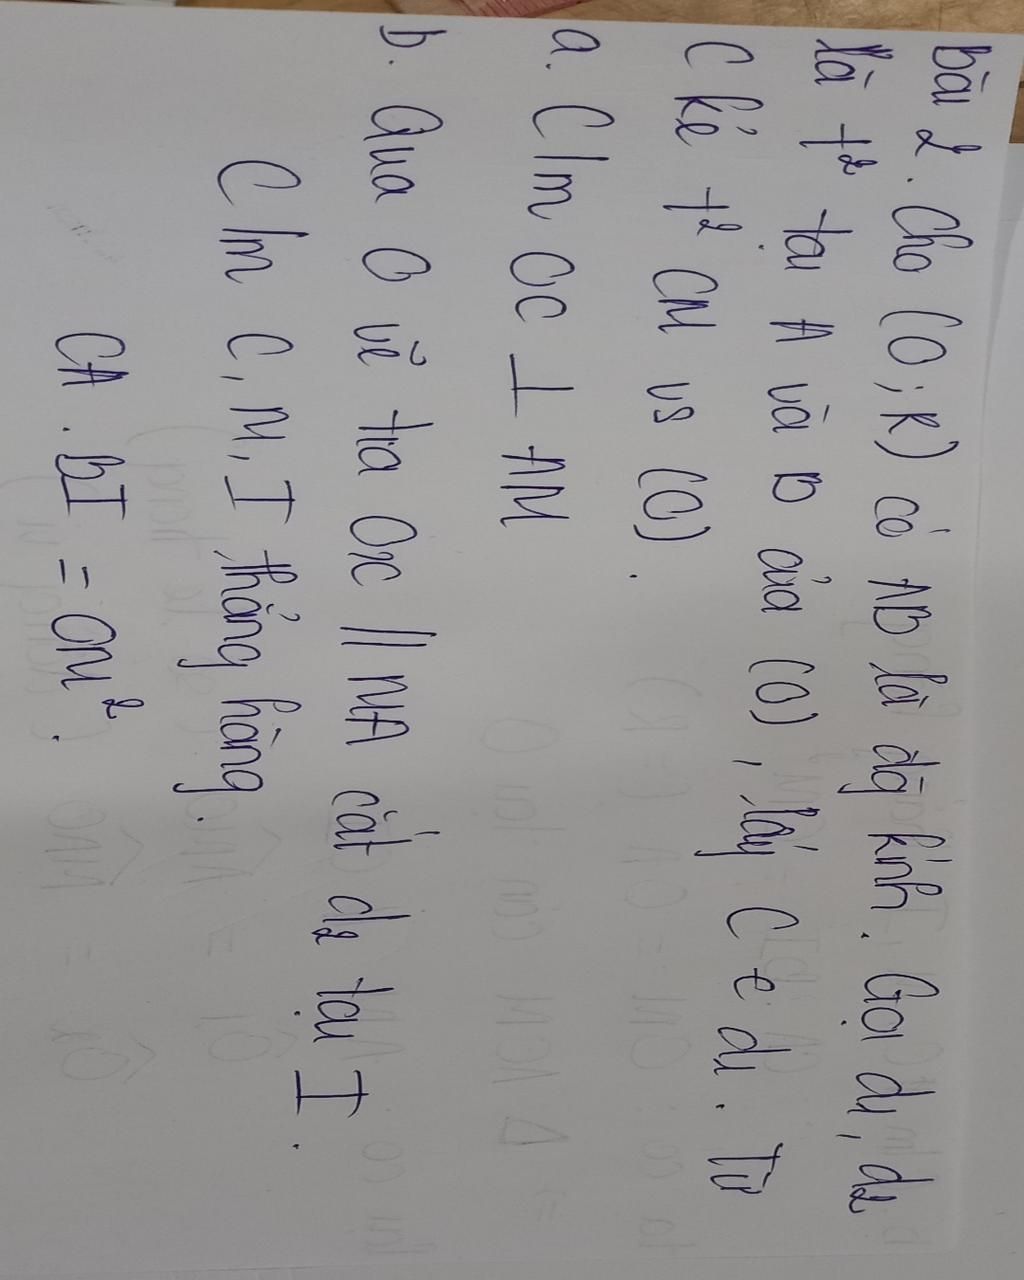 Bài 2. Cho (O; R) có AB là đg kính. Gọi d1, d2
là t² tại A và B của (O), lấy C ∈ d1. Từ
C kẻ t² CM vs (O).
a. C/m OC ⊥ AM
b. Qua O vẽ tia Ox // MA cắt d2 tại I.
C/m C, M, I thẳng hàng.
CA . BI = OM².